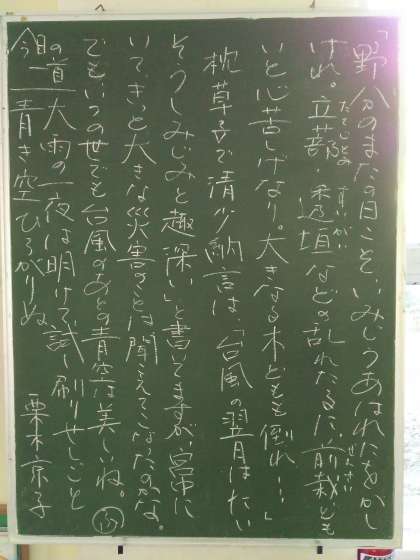 「野分のまたの日こそ、いみじうあはれにをかし
けれ。立蔀・透垣などの乱れたるに、前栽ども
たてじとみ すいがい
せんざい
いと心苦しげなり。大きなる木どもも倒れ…」
枕草子で清少納言は、「台風の翌日はたい
そうしみじみと趣深い」と書いてますが、宮中に
いて、きっと大きな災害のことは聞えてこなかったのかな。
でもいつの世でも台風のあとの青空は美しいね。
今日の一首
の道 大雨の一夜は明けて、試し刷りせしごと
青き空ひろがりぬ 栗木京子